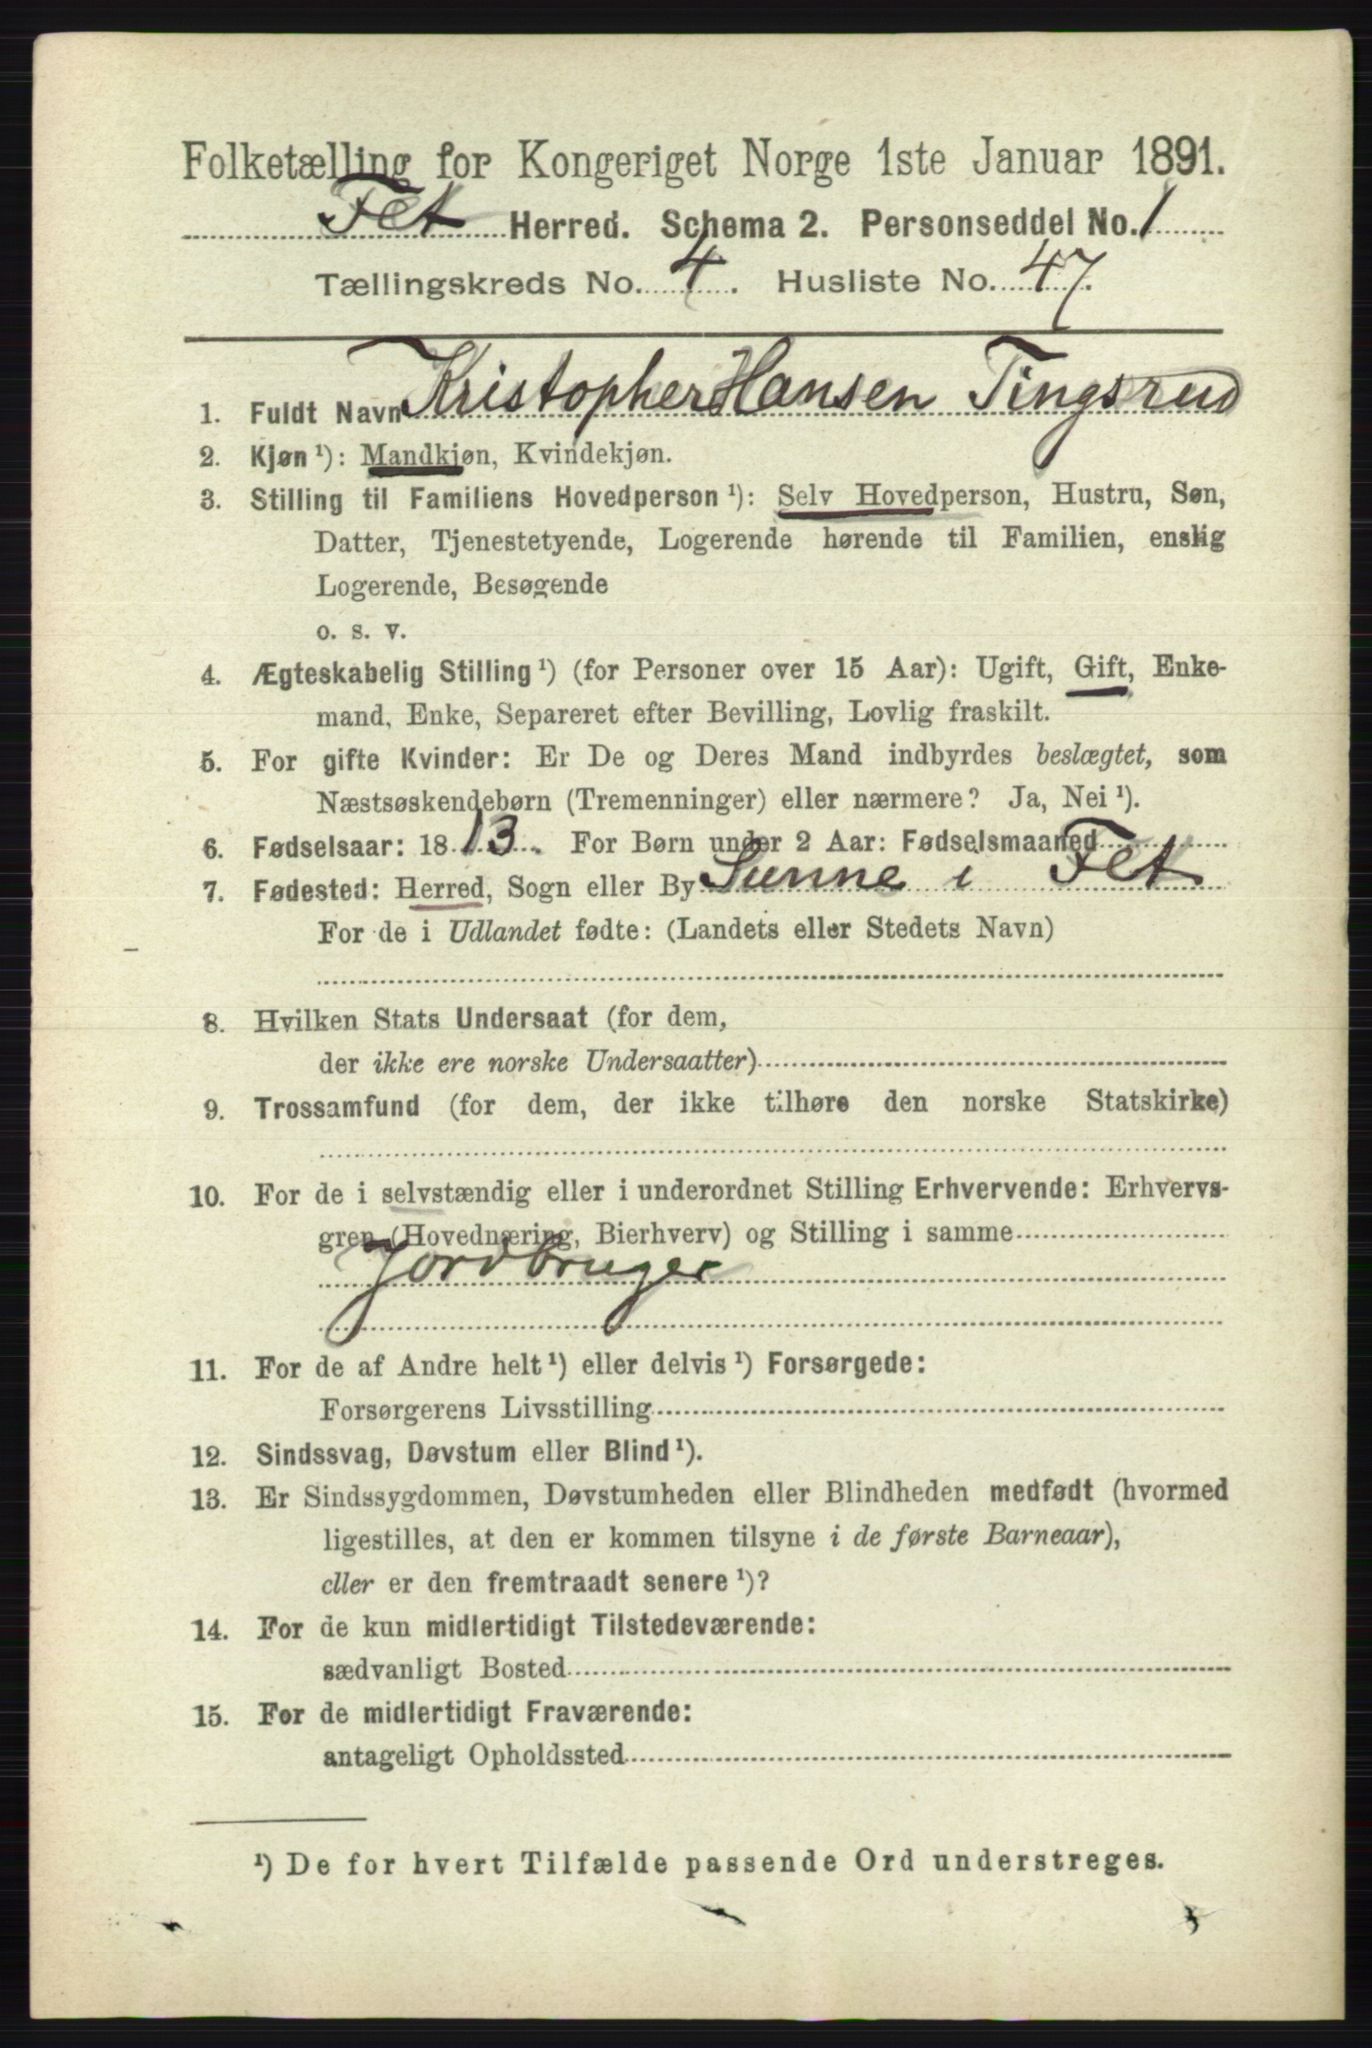 Folketælling for Kongeriget Norge 1ste Januar 1891.
Fet Herred. Schema 2. Personseddel No. 1
Tællingskreds No. 4. Husliste No. 47.
1. Fuldt Navn Kristopher Hansen Tingsrud
2. Kjøn ¹): Mandkjøn, Kvindekjøn.
3. Stilling til Familiens Hovedperson ¹): Selv Hovedperson, Hustru, Søn,
Datter, Tjenestetyende, Logerende hørende til Familien, enslig
Logerende, Besøgende
o. s. v.
4. Ægteskabelig Stilling ¹) (for Personer over 15 Aar): Ugift, Gift, Enke-
mand, Enke, Separeret efter Bevilling, Lovlig fraskilt.
5. For gifte Kvinder: Er De og Deres Mand indbyrdes beslægtet, som
Næstsøskendebørn (Tremenninger) eller nærmere? Ja, Nei ¹).
6. Fødselsaar: 1813. For Børn under 2 Aar: Fødselsmaaned
7. Fødested: Herred, Sogn eller By Sunne i Fet
For de i Udlandet fødte: (Landets eller Stedets Navn)
8. Hvilken Stats Undersaat (for dem,
der ikke ere norske Undersaatter)
9. Trossamfund (for dem, der ikke tilhøre den norske Statskirke)
10. For de i selvstændig eller i underordnet Stilling Erhvervende: Erhvervs-
gren (Hovednæring, Bierhverv) og Stilling i samme
Jordbruger
11. For de af Andre helt ¹) eller delvis ¹) Forsørgede:
Forsørgerens Livsstilling
12. Sindssvag, Døvstum eller Blind ¹).
13. Er Sindssygdommen, Døvstumheden eller Blindheden medfødt (hvormed
ligestilles, at den er kommen tilsyne i de første Barneaar),
eller er den fremtraadt senere ¹)?
14. For de kun midlertidigt Tilstedeværende:
sædvanligt Bosted
15. For de midlertidigt Fraværende:
antageligt Opholdssted
¹) De for hvert Tilfælde passende Ord understreges.